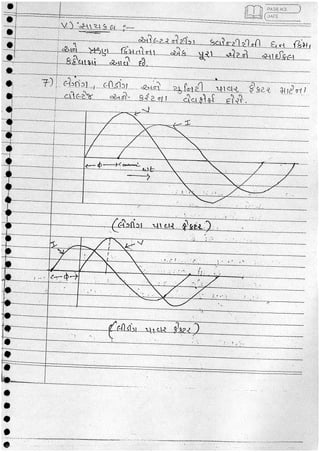 PAGE NO.
DATE
V) સાયકલ :-
ઓલ્ટરનેટીંગ ક્વોન્ટીટીની ધન કિંમત
અને ઋણ કિંમતોના એક પૂરા સેટને સાઈકલ
કહેવામાં આવે છે.
7) લેગીંગ, લીડીંગ અને યુનિટી પાવર ફેક્ટર માટેના
વોલ્ટેજ અને કરંટના વેવફોર્મ દોરો.
V
I
ϕ
ωt
(લેગીંગ પાવર ફેક્ટર)
I
V
ϕ
(લીડીંગ પાવર ફેક્ટર)